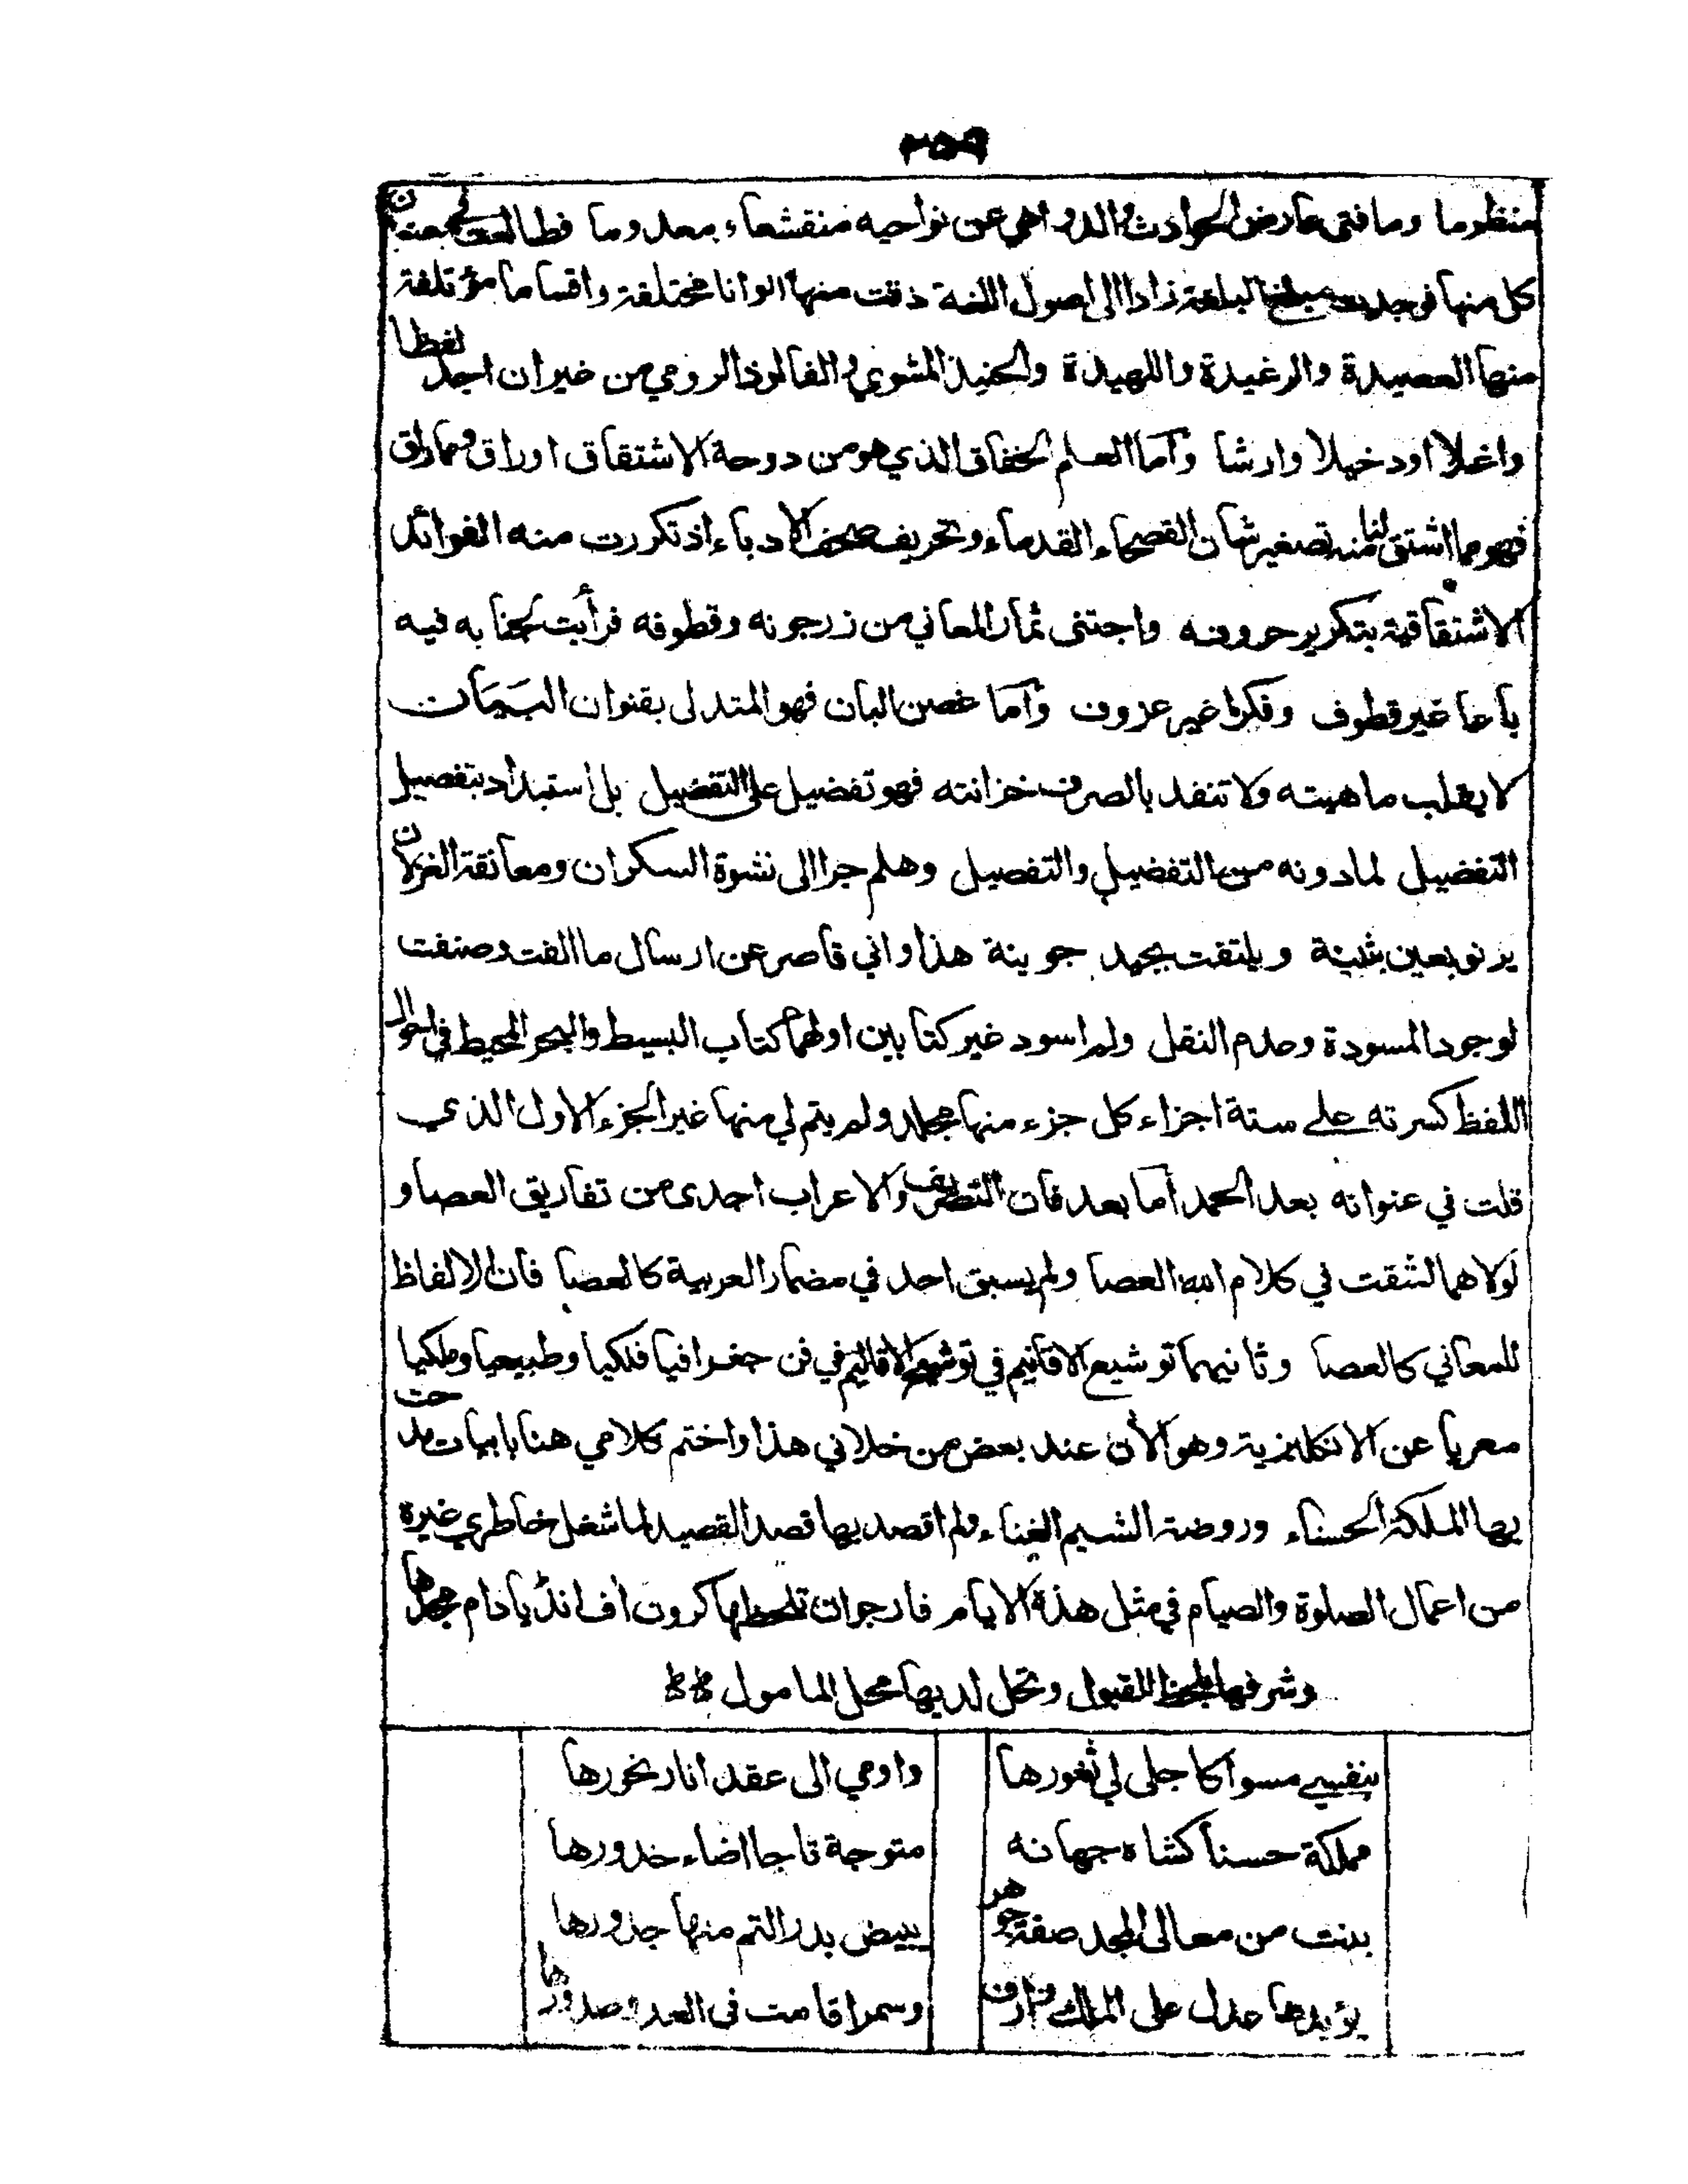 ٣٥٩
منظوما وما فتى عارض الحوادث والدواهي عن نواحيه منقشعا، معدوما فطالعت
كل منها فوجدت البلغة زادا الى اصول اللغة ذقت منها الوانا مختلفة واقساما مؤتلفة
منها العصيدة والرغيدة واللهيدة والحنيذ المشوي والفالوذ الرومي من غير ان اجد لفظا
واغلا او دخيلا وارشا وأما العلم الخفاق الذي هو من دوحة الاشتقاق اوراق
فهو مما اشتق لنا منه تصغير شان الفصحاء القدماء وتحريف صحف الادباء اذ تكررت منه الفوائد
الاشتقاقية بتكرير حروفه واجتنى ثمار المعاني من زرجونه وقطوفه فرأيت لجنابه فيه
باعا غير قطوف وفكرا غير عزوف وأما غصن البان فهو المتدلى بقنوان البيمات
لا يقلب ماهيته ولا تنفد بالصرف خزانته فهو تفضيل على التفضيل بل استبداد بتفصيل
التفضيل لما دونه من التفضيل والتفصيل وهلم جرا الى نشوة السكران ومعانقة الغزلان
يرنو بعين بثينة ويلتفت بجيد جوينة هذا واني قاصر عن ارسال ما الفت وصنفت
لوجود المسودة وعدم النقل ولم اسود غير كتابين اولهما كتاب البسيط والبحر المحيط في احوال
اللفظ كسرته على ستة اجزاء كل جزء منها مجلد ولم يتم لي منها غير الجزء الاول الذي
قلت في عنوانه بعد الحمد أما بعد فان التصريف والاعراب احدى من تفاريق العصا و
لولاهما لشقت في كلام الله العصا ولم يسبق احد في مضمار العربية كالعصا فان الالفاظ
للمعاني كالعصا وثانيهما توشيع الاقانيم في توشيم الاقاليم في فن جغرافيا فلكيا وطبيعيا وملكيا
معربا عن الانكليزية وهو الأن عند بعض من خلاني هذا واختم كلامي هنا بابيات مدحت
بها الملكة الحسناء وروضة الشيم الغناء ولم اقصد بها قصد القصيد لما شغل خاطري غيره
من اعمال الصلوة والصيام في مثل هذه الايام فارجو ان تلحظها كرون أف انڈيا دام مجدها
وشرفها بلحظ القبول وتحل لديها محل المامول
بنفسي مسواكا جلى لي ثغورها واومي الى عقد انار نحورها
مملكة حسنا كشاه جهانه متوجة تاجا اضاء خدورها
بدنت من معالى المجد صفة جوهر ببيض بدر التم منها جذورها
يؤيدها عدل على الملك وسمرا قامت في العدا صدورها